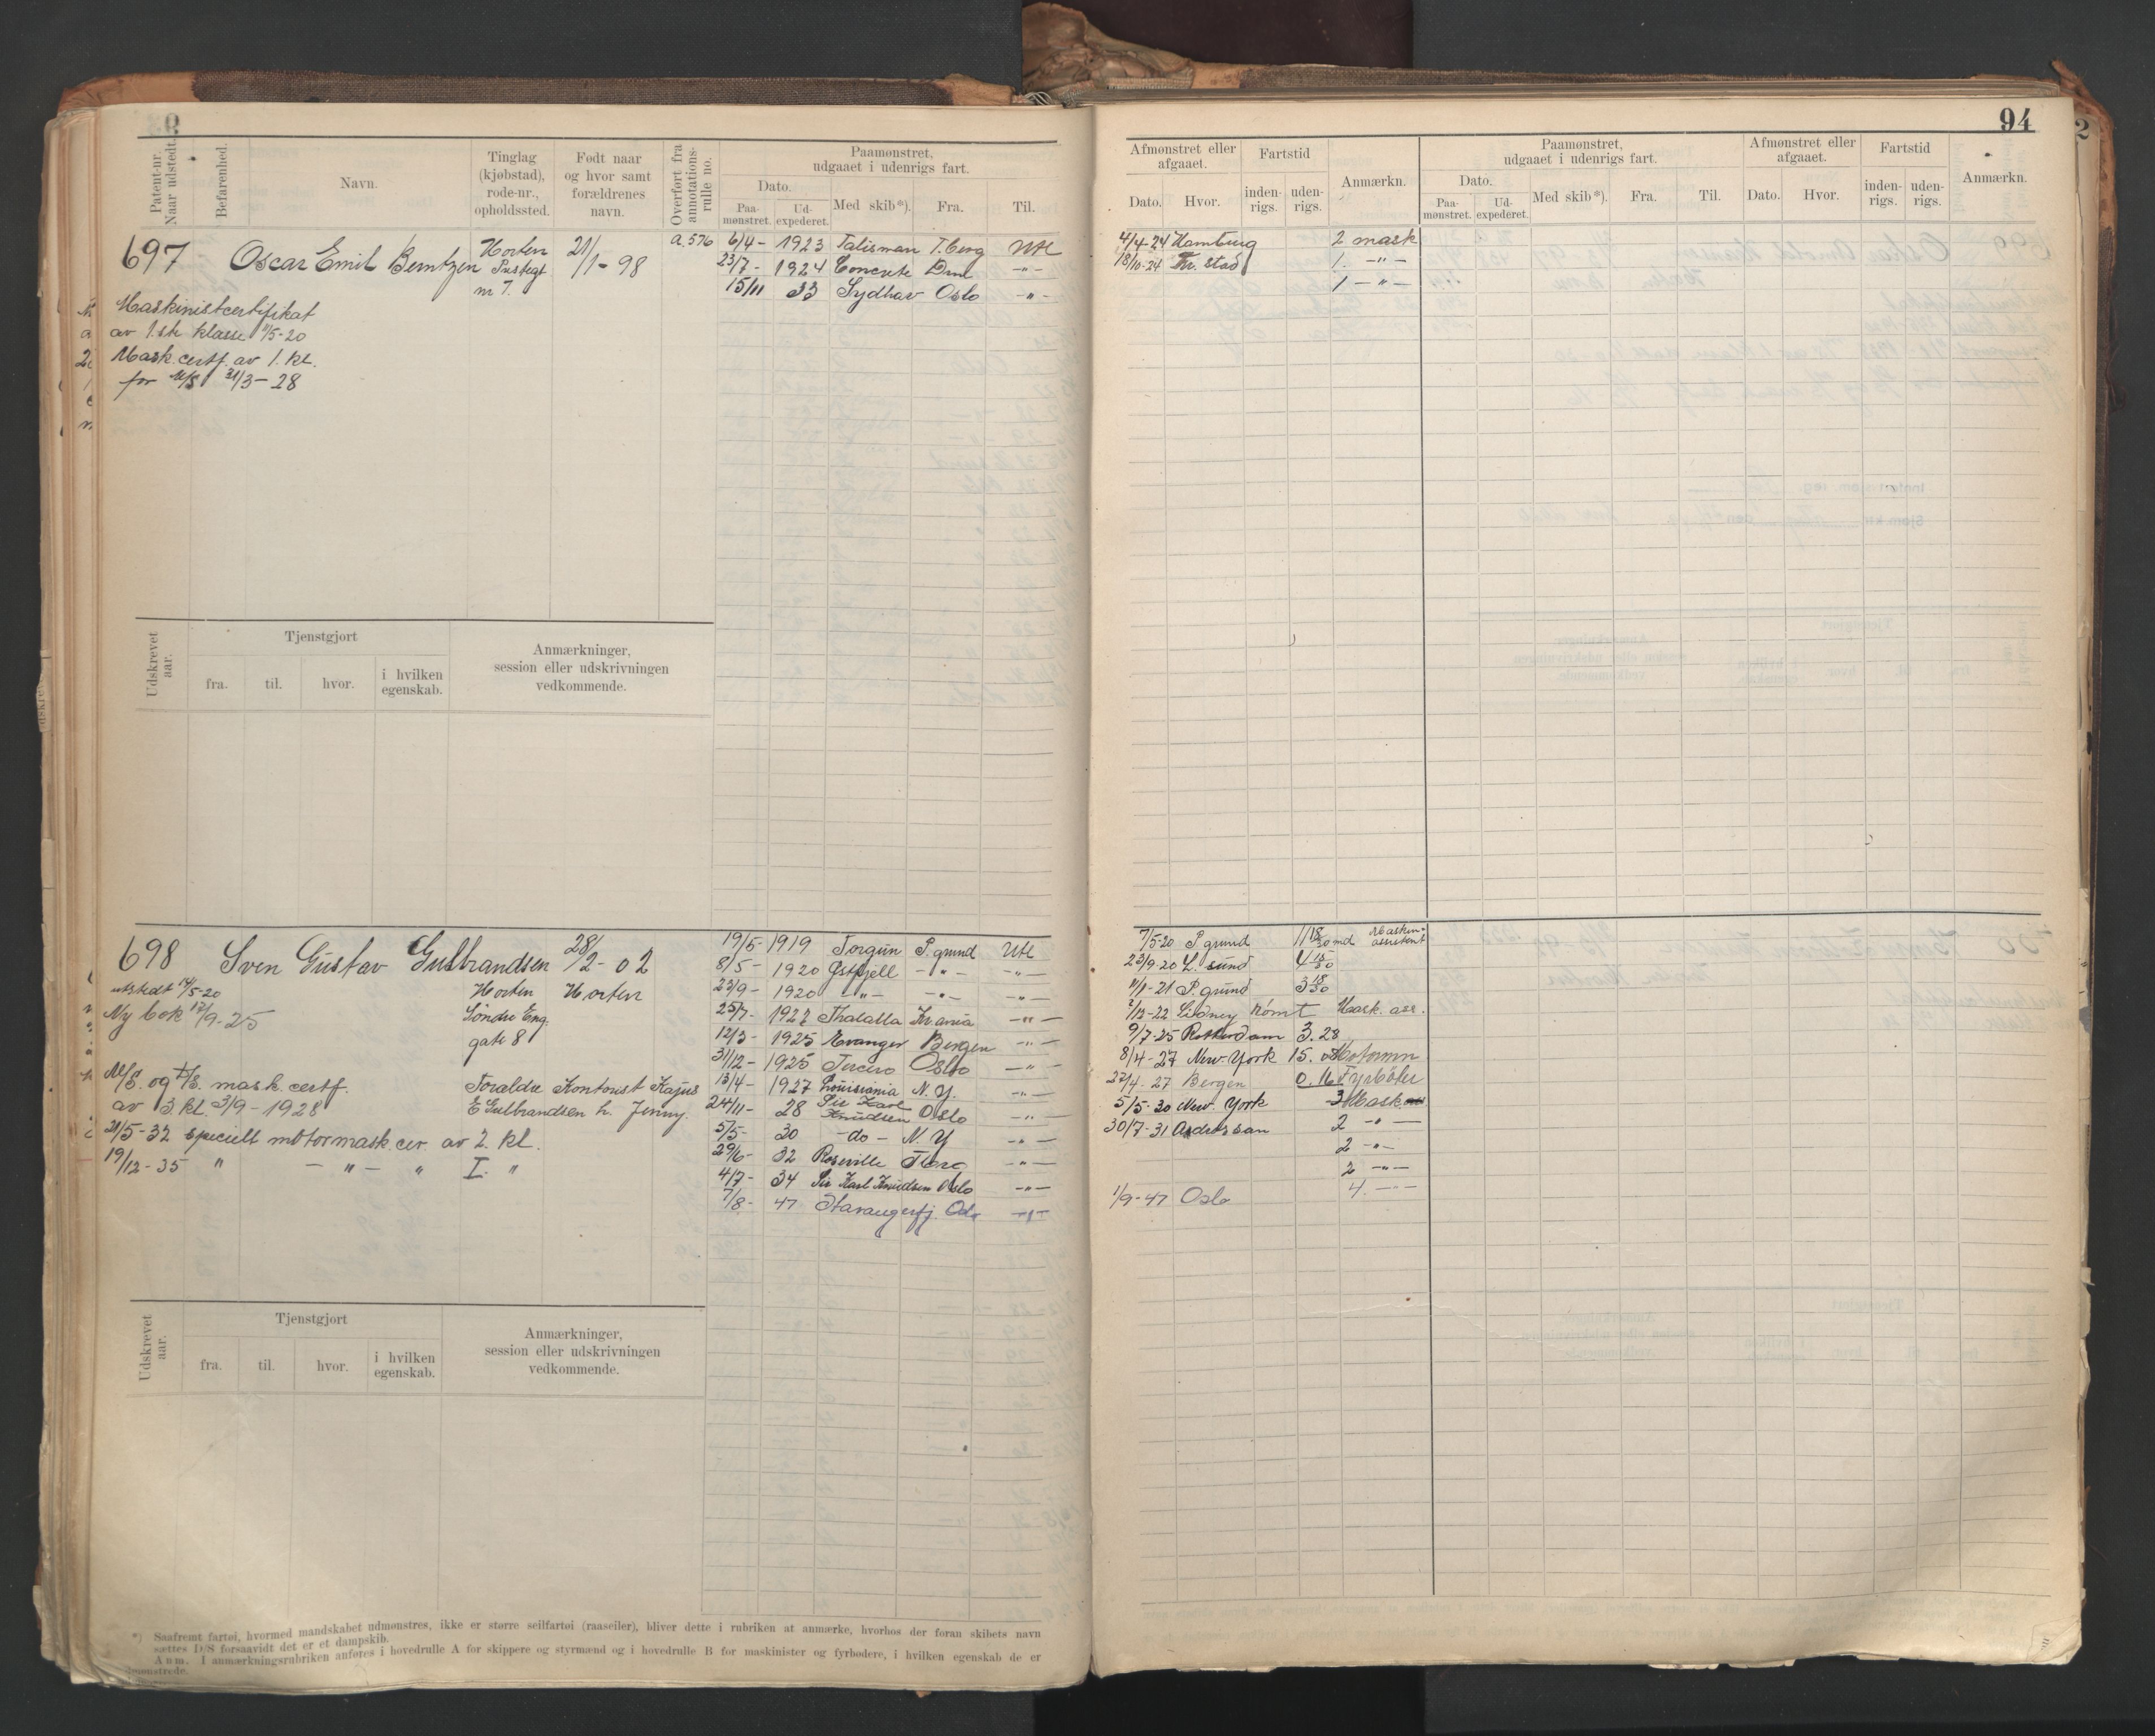 94
Patentnr. Naar udstedt.
Befarenhed.
Navn.
Tinglag (kjøbstad), rode-nr., opholdssted.
Født naar og hvor samt forældrenes navn.
Overført fra annotations-rulle no.
Paamønstret, udgaaet i udenrigs fart.
Dato.
Paa-mønstret.
Ud-expederet.
Med skib*).
Fra.
Til.
Afmønstret eller afgaaet.
Dato.
Hvor.
Fartstid
inden-rigs.
uden-rigs.
Anmærkn.
Paamønstret, udgaaet i udenrigs fart.
Dato.
Paa-mønstret.
Ud-expederet.
Med skib*).
Fra.
Til.
Afmønstret eller afgaaet.
Dato.
Hvor.
Fartstid
inden-rigs.
uden-rigs.
Anmærkn.
697 Oscar Emil Berntzen Horten 21/1-98 a. 576
nr 7.
Maskinistcertifikat
av 1.ste klasse 1/5-20
Mask. certf. av 1. kl.
for M/S 31/3-28
6/4- 1923 Talisman T.berg Utl 4/4-24 Hamburg 2 mask
23/7- 1924 Concrete Drm -"- 18/10-24 Fr. stad 1. -"-
15/11 33 Sydhav Oslo -"- 1 -"-
Udskrevet aar.
Tjenstgjort
fra.
til.
hvor.
i hvilken egenskab.
Anmærkninger, session eller udskrivningen vedkommende.
698 Sven Gustav Gulbrandsen 28/2-02
utstedt 14/5-20 Horten Horten
Ny bok 12/9-25 Søndre Eng.
gate 8
M/S. og D/S. mask. certf. Foraldre Kontorist Kajus
av 3. kl. 3/9-1928 E Gulbrandsen h. Jenny.
21/5-32 speciell motormask. cer. av 2. kl.
19/12-35 " -"- " I. "
19/5- 1919 Torgun P.grund Utl 7/5-20 P.grund 11 18/30 md Maskin-assistent
8/5- 1920 Østfjell -"- -"- 23/9-20 L. sund 4 15/30
23/9- 1920 -"- -"- -"- 11/1-21 P.grund 3 18/30
25/7- 1922 Thalatta Kr.ania -"- 2/12-22 Sidney Rømt Mask. ass.
12/3- 1925 Evanger Bergen -"- 9/7-25 Rotterdam 3.28
31/12- 1925 Tercero Oslo -"- 8/4-27 New-York 15. Motormn
13/4- 1927 Louisiania N.Y. -"- 27/4-27 Bergen 0.16 Fyrbøter
24/11- 28 Sir Karl Knudsen Oslo -"- 5/5-30 New-York 3 Mask.
5/5- 30 -do- N.Y -"- 30/7-31 Ardrossan 2 -"-
29/6- 32 Roseville T.berg -"- 2 -"-
4/7- 34 Sir Karl Knudsen Oslo -"- 2 -"-
7/8- 47 Stavangerfj. Oslo -"- 1/9-47 Oslo 4. -"-
Udskrevet aar.
Tjenstgjort
fra.
til.
hvor.
i hvilken egenskab.
Anmærkninger, session eller udskrivningen vedkommende.
*) Saafremt fartøi, hvormed mandskabet udmønstres, ikke er større seilfartøi (raaseiler), bliver dette i rubriken at anmærke, hvorhos der foran skibets navn
sættes D/S forsaavidt det er et dampskib.
Anm. I anmærkningsrubriken anføres i hovedrulle A for skippere og styrmænd og i hovedrulle B for maskinister og fyrbødere, i hvilken egenskab de er